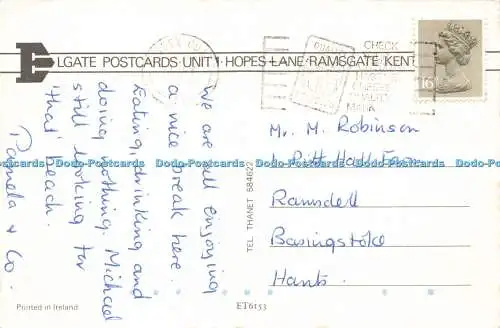 ELGATE POSTCARDS · UNIT 1 · HOPES LANE · RAMSGATE KENT
CHECK
16
We are all enjoying
a nice break here.
Eating, drinking and
doing nothing. Michael
still looking for
'that' beach.
Pamela & Co.
TEL. THANET 684622
Mr. M. Robinson
Pitt Hall Farm
Ramsdell
Basingstoke
Hants.
Printed in Ireland
ET6153
Dodo-Postcards Dodo-Postcards Dodo-Postcards Dodo-Postcards Dodo-Postcards